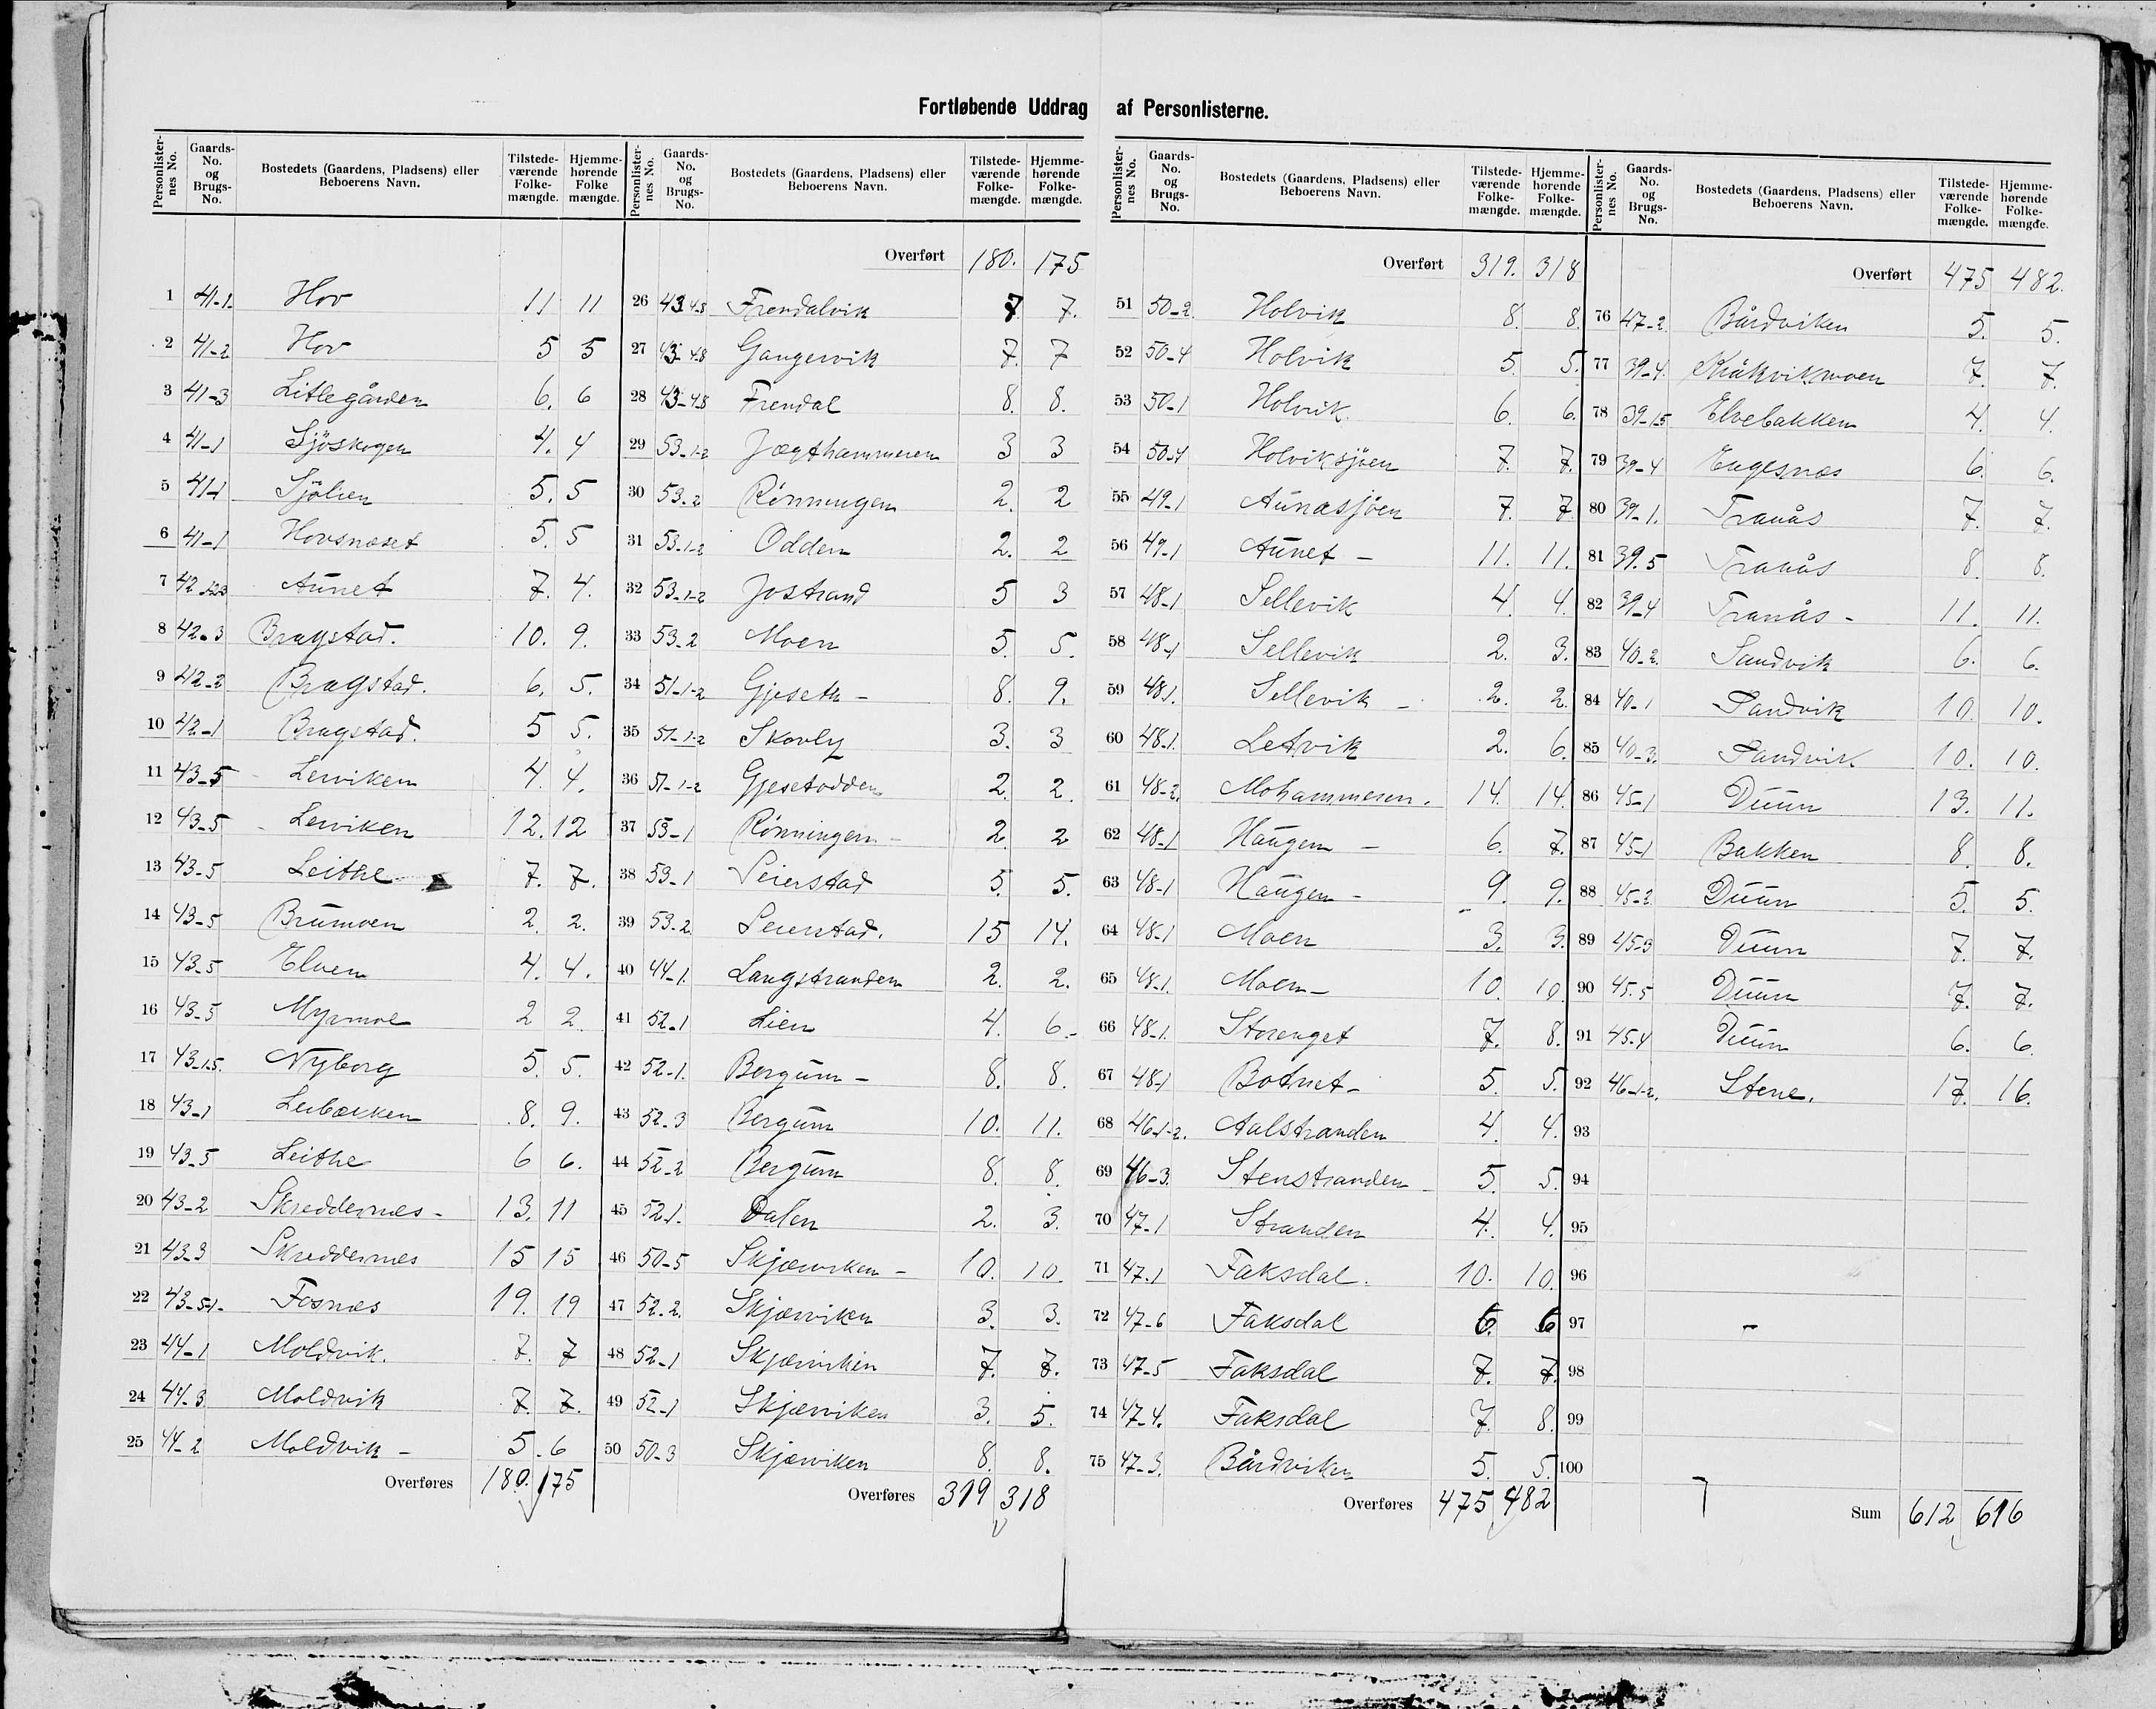 Fortløbende Uddrag af Personlisterne.
Personlister-nes No. Gaards-No. og Brugs-No. Bostedets (Gaardens, Pladsens) eller Beboerens Navn. Tilstede-værende Folke-mængde. Hjemme-hørende Folke mængde.
1 41-1. Hov 11 11
2 41-2 Hov 5 5
3 41-3 Litlegården 6. 6
4 41-1 Sjöskogen 4. 4
5 41-1 Sjölien 5. 5
6 41-1 Hovsnæset 5. 5
7 42-1-2-3 Aunet 7. 4.
8 42-3 Bragstad. 10. 9.
9 42-2 Bragstad. 6. 5.
10 42-1 Bragstad. 5 5.
11 43-5 Lerviken 4. 4.
12 43-5 Lerviken 12. 12
13 43-5 Leithe 7. 7.
14 43-5 Brumoen 2. 2.
15 43-5 Elven 4. 4.
16 43-5 Myrmoe 2 2.
17 43-1.5. Nyborg 5. 5.
18 43-1 Leibakken 8. 9.
19 43-5 Leithe 6 6.
20 43-2 Skreddernes - 13. 11
21 43-3 Skreddernes 15 15
22 43-5-1- Fosnes 19. 19
23 44-1 Moldvik. 7. 7
24 44-3 Moldvik 7. 7.
25 44-2 Moldvik - 5. 6
Overføres 180. 175
Personlister-nes No. Gaards-No. og Brugs-No. Bostedets (Gaardens, Pladsens) eller Beboerens Navn. Tilstede-værende Folke-mængde. Hjemme-hørende Folke-mængde.
Overført 180. 175
26 43 4-8 Frendalvik 7 7.
27 43-4-8 Gangervik 7. 7
28 43-4-8 Frendal 8. 8.
29 53-1-2 Jægthammeren 3 3
30 53-2 Rönningen 2. 2
31 53-1-2 Odden 2. 2
32 53-1-2 Jostrand 5 3
33 53-2 Moen 5. 5.
34 51-1-2 Gjeseth - 8. 9.
35 51-1-2 Skovly 3. 3
36 51-1-2 Gjesetodden 2. 2.
37 53-1 Rönningen - 2. 2
38 53-1 Seierstad 5. 5.
39 53-2. Seierstad. 15 14.
40 44-1. Langstranden 2. 2.
41 52-1 Lien 4. 6-
42 52-1. Bergum - 8. 8.
43 52-3 Bergum 10. 11.
44 52-2 Bergum 8. 8.
45 52-1. Dalen 2. 3.
46 50-5 Skjærviken - 10. 10.
47 52-2. Skjærviken 3. 3.
48 52-1 Skjærviken 7. 7.
49 52-1 Skjærviken 3. 5.
50 50-3 Skjærviken 8. 8.
Overføres 319 318
Personlister-nes No. Gaards-No. og Brugs-No. Bostedets (Gaardens, Pladsens) eller Beboerens Navn. Tilstede-værende Folke-mængde. Hjemme-hørende Folke-mængde.
Overført 319. 318
51 50-2 Holvik 8. 8.
52 50-4 Holvik 5. 5.
53 50-1 Holvik. 6. 6.
54 50-4 Holviksjöen 7. 7.
55 49-1 Aunasjöen 7. 7.
56 49-1 Aunet - 11. 11.
57 48-1 Sellevik 4. 4.
58 48-1 Sellevik 2. 3.
59 48-1. Sellevik - 2. 2.
60 48-1. Letvik 2. 6.
61 48-2. Mohammeren. 14. 14.
62 48-1 Haugen - 6. 7.
63 48-1 Haugen - 9. 9.
64 48-1 Moen 3. 3.
65 48-1. Moen- 10. 10
66 48-1. Storenget 7. 8.
67 48-1 Botnet- 5. 5.
68 46-1-2. Aalstranden 4. 4.
69 46-3. Stenstranden 5. 5.
70 47-1 Stranden 4. 4.
71 47-1 Faksdal. 10. 10.
72 47-6 Faksdal 6. 6
73 47-5 Faksdal 7. 7.
74 47-4. Faksdal 7. 8.
75 47-3. Bårdviken 5. 5.
Overføres 475 482
Personlister-nes No. Gaards-No. og Brugs-No. Bostedets (Gaardens, Pladsens) eller Beboerens Navn. Tilstede-værende Folke-mængde. Hjemme-hørende Folke-mængde.
Overført 475 482.
76 47-2 Bårdviken 5. 5.
77 39-4. Kråkvikmoen 7. 7.
78 39-15 Elvebakken 4. 4.
79 39-4 Engesnæs 6. 6.
80 39-1. Tranås 7. 7.
81 39.5 Tranås 8. 8.
82 39-4 Tranås - 11. 11.
83 40-2. Sandvik 6. 6.
84 40-1 Sandvik 10. 10.
85 40-3. Sandvik 10. 10.
86 45-1 Duun 13. 11.
87 45-1 Bakken 8. 8.
88 45-2 Duun 5. 5.
89 45-3 Duun 7. 7.
90 45.5 Duun 7. 7.
91 45.4 Duun 6. 6.
92 46-1-2. Stene. 17. 16.
93
94
95
96
97 -
98
99
100
Sum 612 616